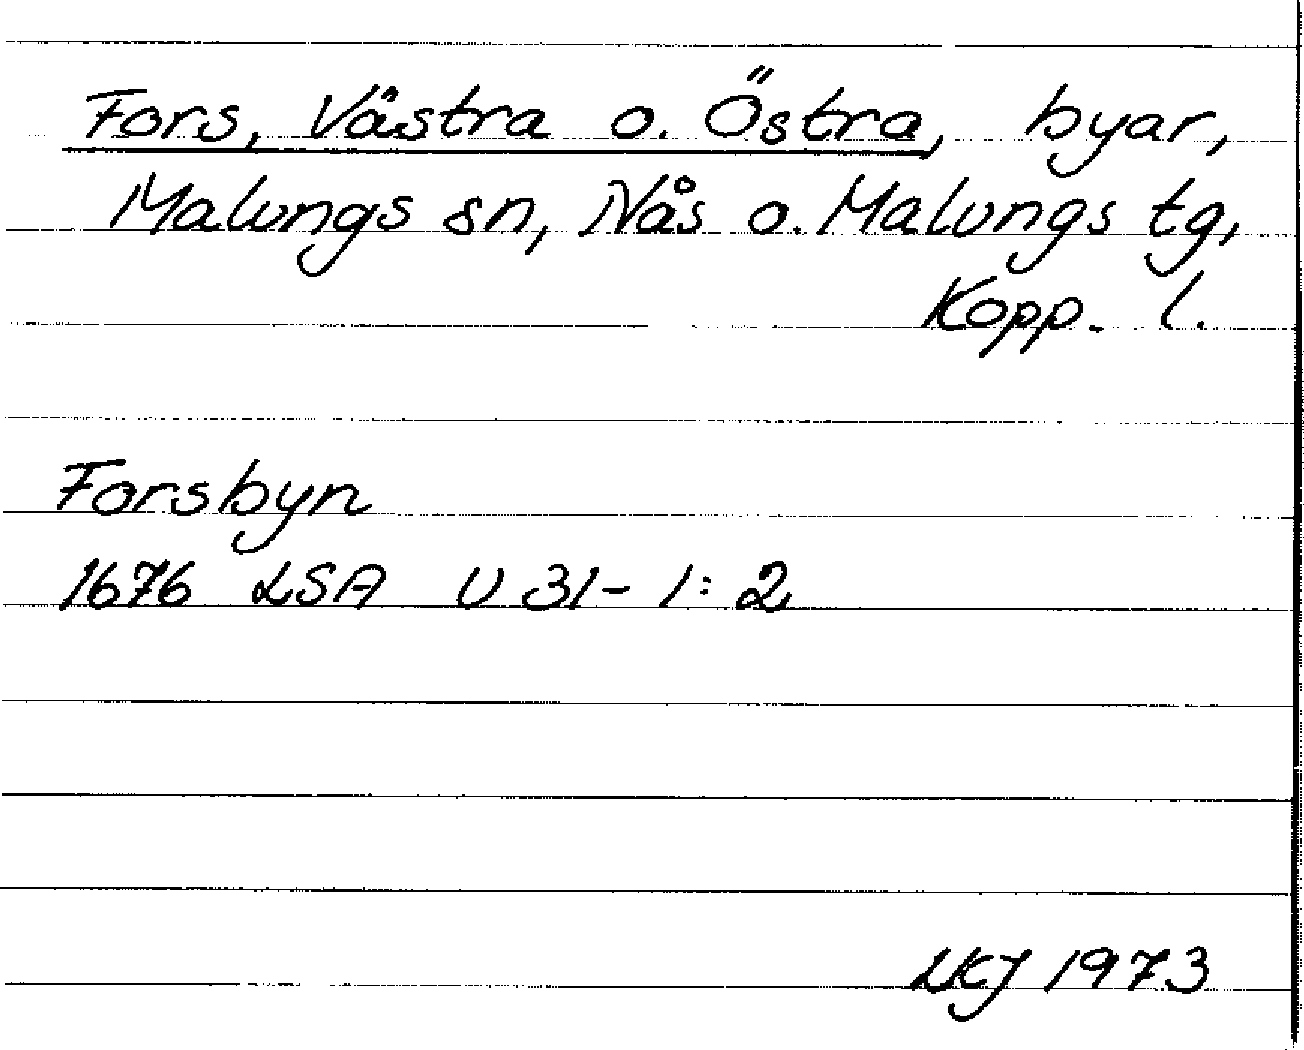 Fors, Västra o. Östra, byar,
Malungs sn, Nås o. Malungs tg,
Kopp. l.
Forsbyn
1676 LSA U 31-1:2
LKJ 1973